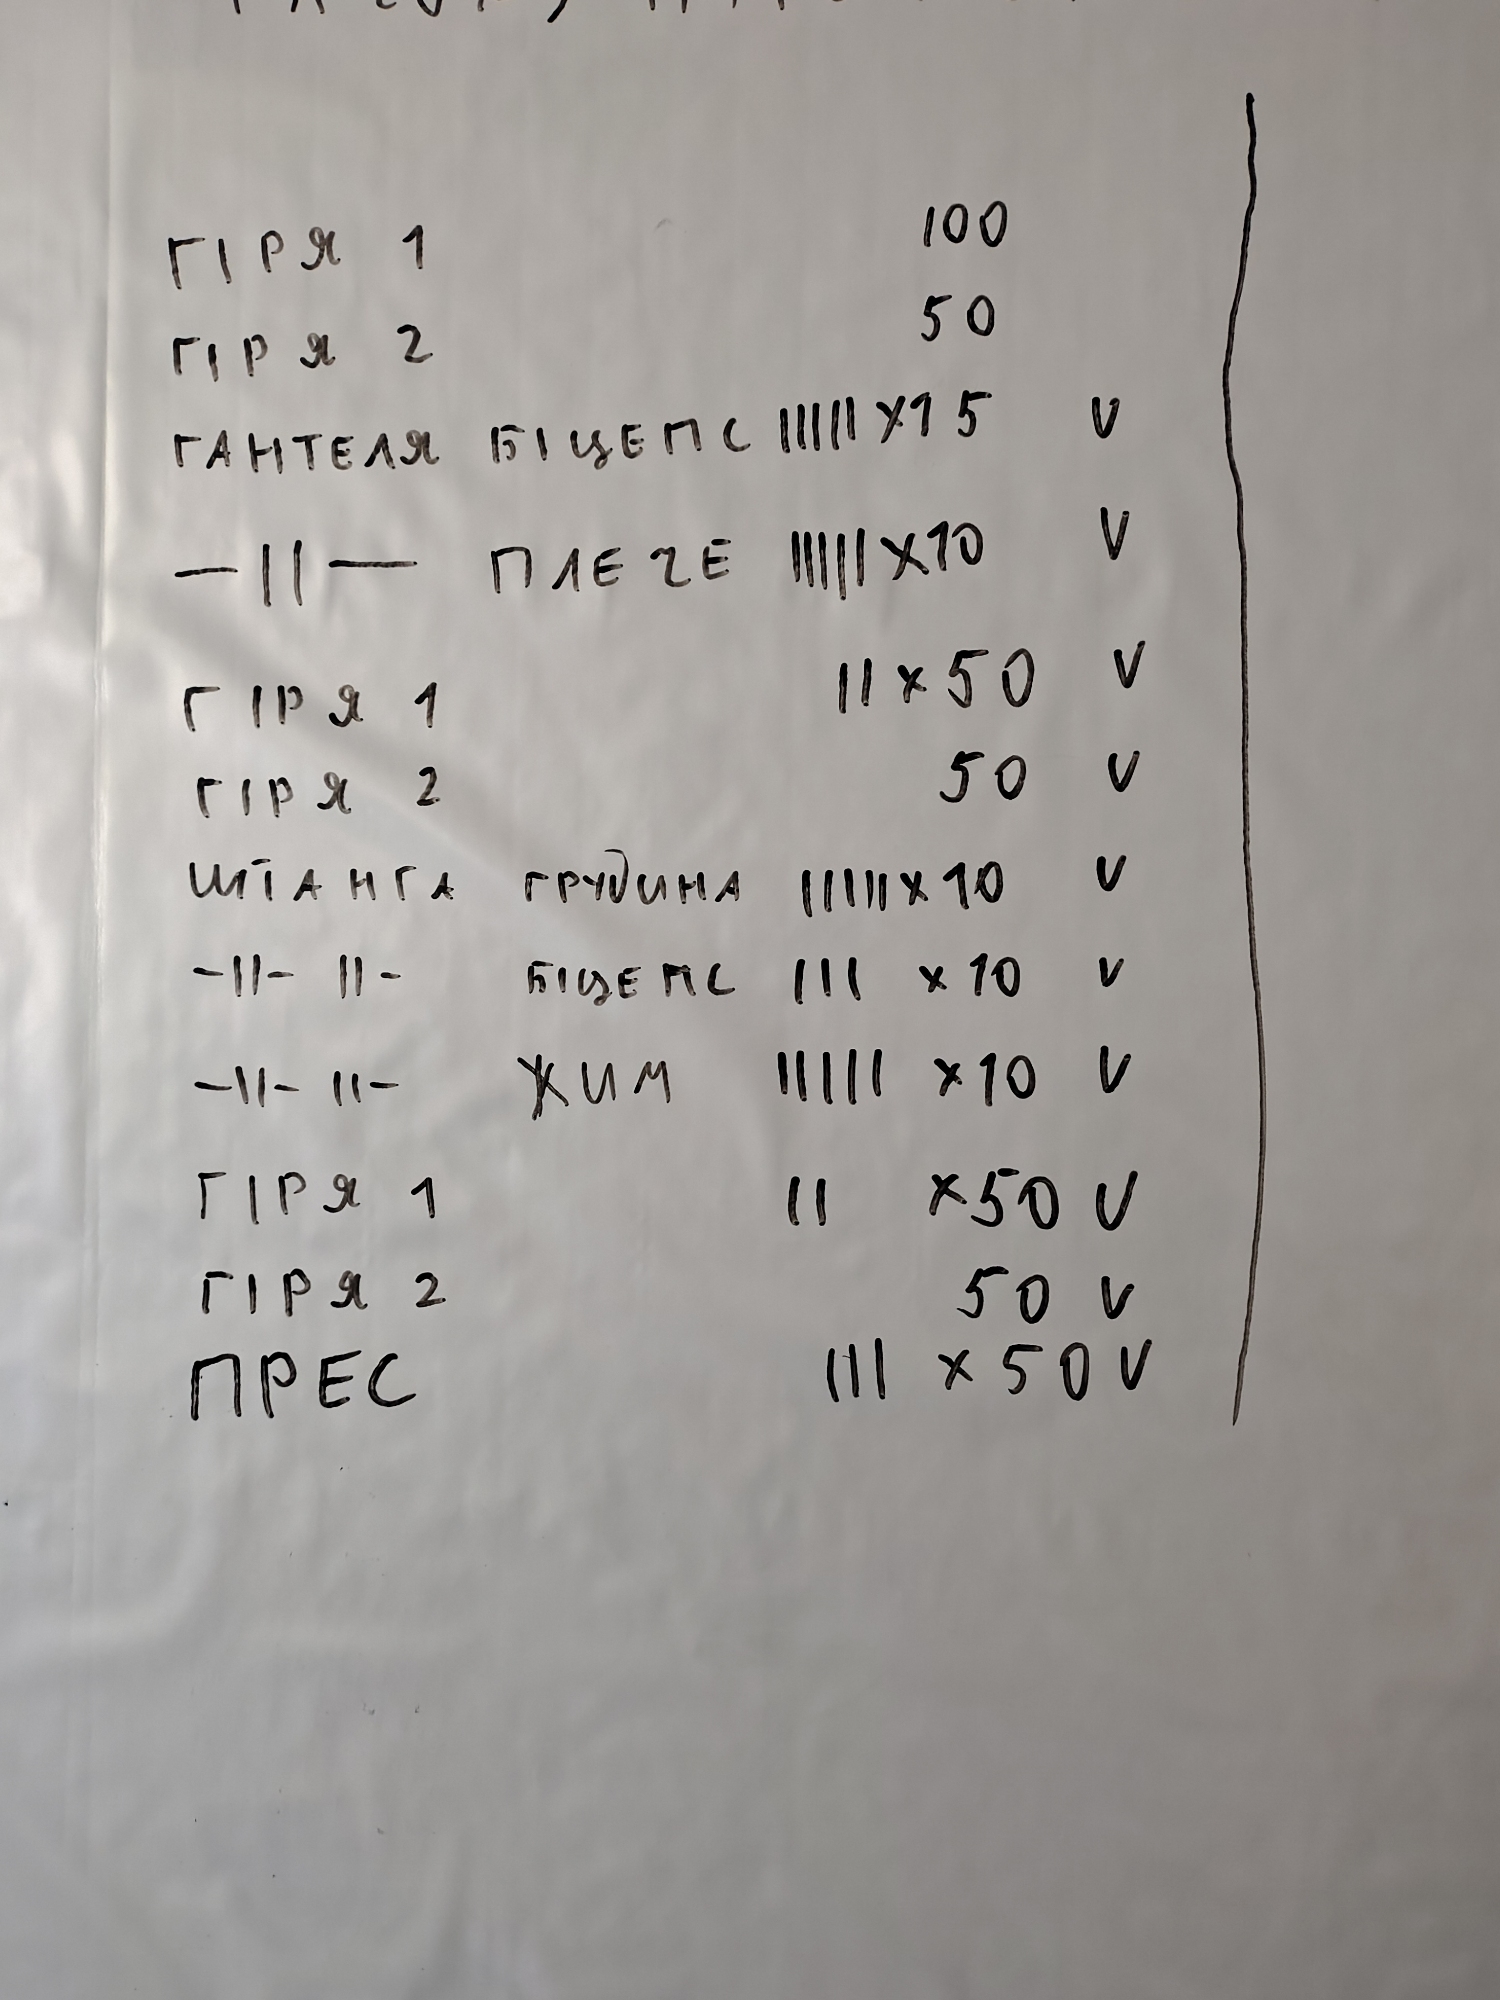 ГІРЯ 1 100
ГІРЯ 2 50
ГАНТЕЛЯ БІЦЕПС |||||x15 V
—||— ПЛЕЧЕ |||||x10 V
ГІРЯ 1 ||x50 V
ГІРЯ 2 50 V
ШТАНГА ГРУДИНА ||||||x10 V
-||- ||- БІЦЕПС ||| x10 V
-||- ||- ЖИМ ||||| x10 V
ГІРЯ 1 || x50 V
ГІРЯ 2 50 V
ПРЕС ||| x50 V